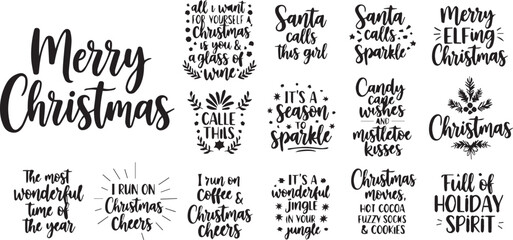 Merry
Christmas
all i want
FOR YOURSELF
Christmas
is you &
a glass of
wine
Santa
calls
this girl
Santa
calls
Sparkle
Merry
ELFing
Christmas
CALLE
THILS
IT'S A
season
TO
sparkle
Candy
cane
wishes
AND
mistletoe
kisses
Christmas
The most
wonderful
time of
the year
I RUN ON
Christmas
Cheers
I run on
Coffee &
Christmas
cheers
IT'S A
wonderful
jingle
IN your
jungle
Christmas
movies,
HOT COCOA
FUZZY SOCKS
& COOKIES
Full of
HOLIDAY
SPIRIT